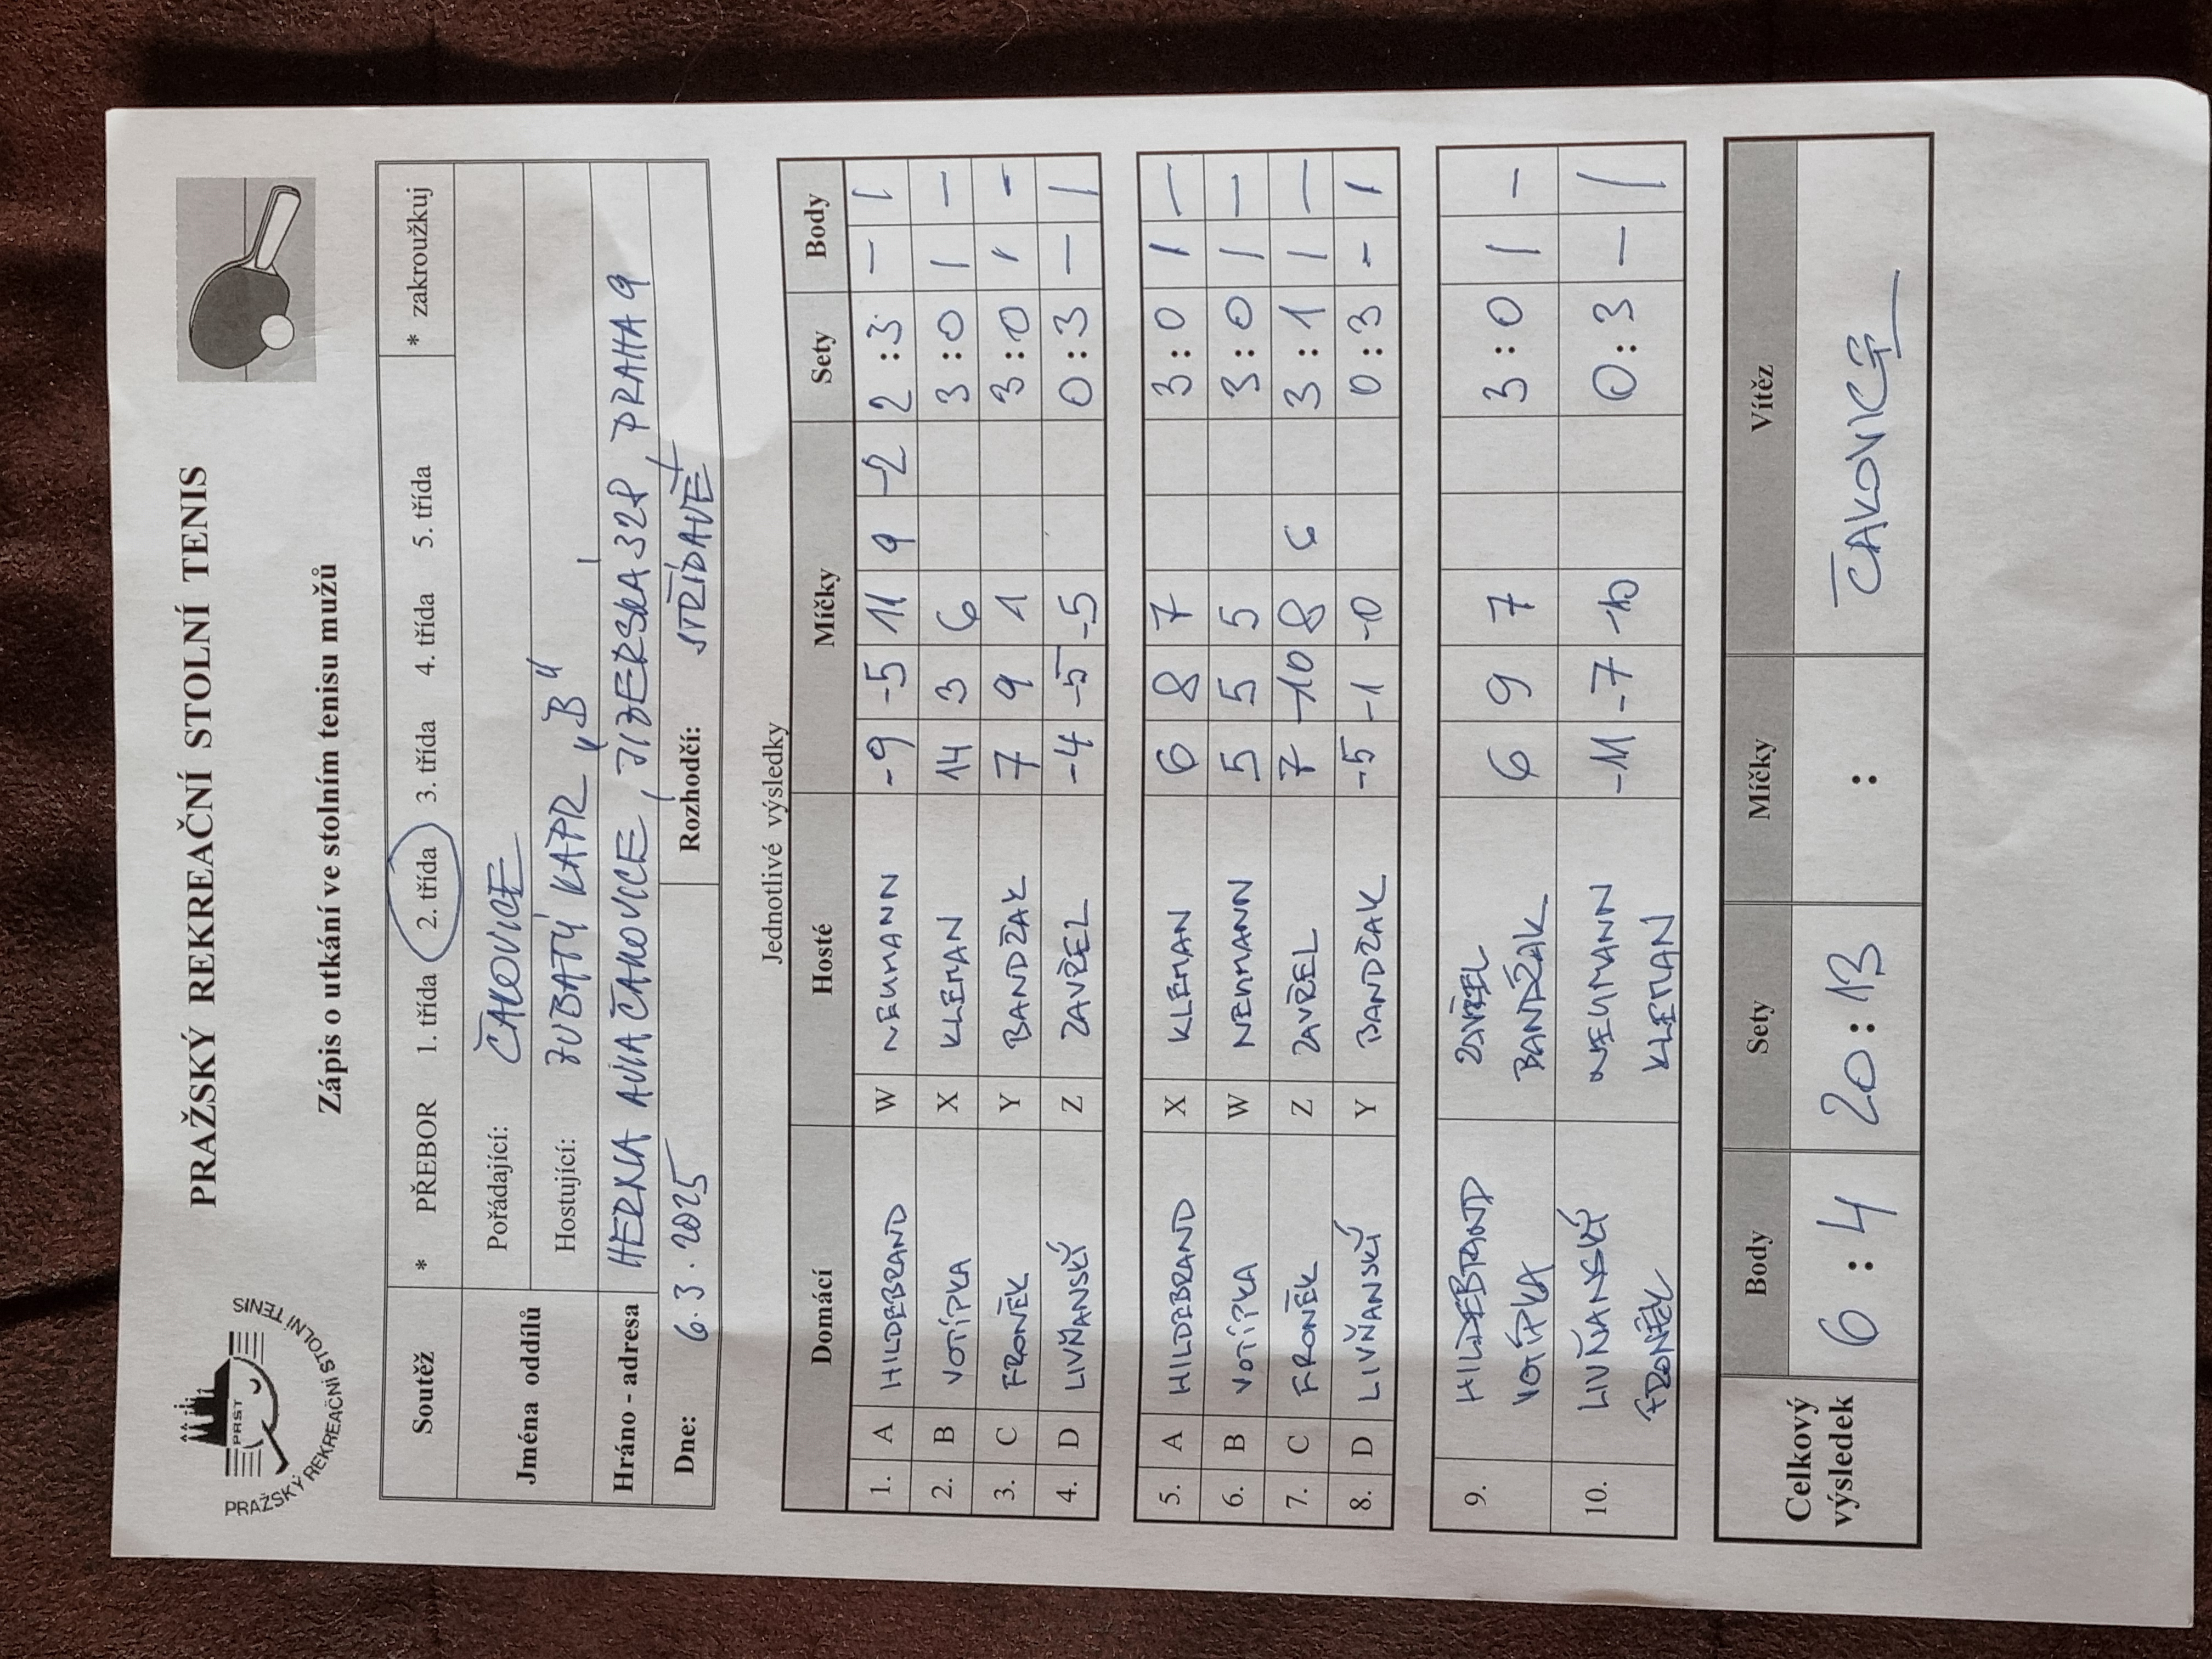 PRAŽSKÝ REKREAČNÍ STOLNÍ TENIS
PRST
PRAŽSKÝ REKREAČNÍ STOLNÍ TENIS
Zápis o utkání ve stolním tenisu mužů
Soutěž * PŘEBOR 1. třída 2. třída 3. třída 4. třída 5. třída * zakroužkuj
Jména oddílů
Pořádající: ČAKOVICE
Hostující: ZUBATÝ KAPR „B"
Hráno - adresa HERNA AVIA ČAKOVICE, JIZERSKÁ 328 PRAHA 9
Dne: 6.3.2025 Rozhodčí: STŘÍDAVĚ
Jednotlivé výsledky
Domácí Hosté Míčky Sety Body
1. A HILDEBRAND W NEUMANN -9 -5 11 9 -2 2 : 3 – 1
2. B VOTÍPKA X KLEMAN 14 3 6 3 : 0 1 –
3. C FRONĚK Y BANDŽAK 7 9 1 3 : 0 1 -
4. D LIVŇANSKÝ Z ZAVŘEL -4 -5 -5 0 : 3 – 1
5. A HILDEBRAND X KLEMAN 6 8 7 3 : 0 1 –
6. B VOTÍPKA W NEUMANN 5 5 5 3 : 0 1 –
7. C FRONĚK Z ZAVŘEL 7 -10 8 6 3 : 1 1 –
8. D LIVŇANSKÝ Y BANDŽAK -5 -1 -0 0 : 3 - 1
9. HILDEBRAND ZAVŘEL 6 9 7 3 : 0 1 –
VOTÍPKA BANDŽAK
10. LIVŇANSKÝ NEUMANN -11 -7 -10 0 : 3 – 1
FRONĚK KLEMAN
Celkový výsledek Body Sety Míčky Vítěz
6 : 4 20 : 13 : ČAKOVICE